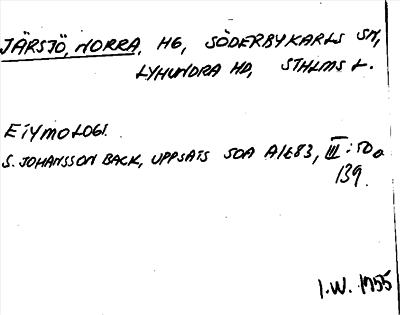 JÄRSJÖ, NORRA, HG, SÖDERBYKARLS SN,
LYHUNDRA HD, STHLMS L.
ETYMOLOGI.
S. JOHANSSON BACK, UPPSATS SOA A1683, III:50a
139.
I.W. 1955